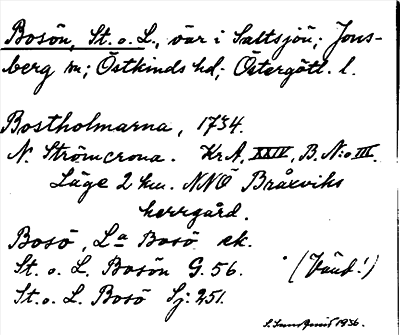 Bosön, St. o. L., öar i Saltsjön; Jons-
berg sn; Östkinds hd; Östergötl. l.
Bostholmarna, 1734.
N. Strömcrona. Kr A, XXIV, B. N:o III.
Läge 2 km. NNÖ Bråxviks
herrgård.
Bosö, La Bosö ek.
St. o. L. Bosön G. 56. (Vänd!)
St. o. L. Bosö Sj: 251.
S. Sundquist 1936.